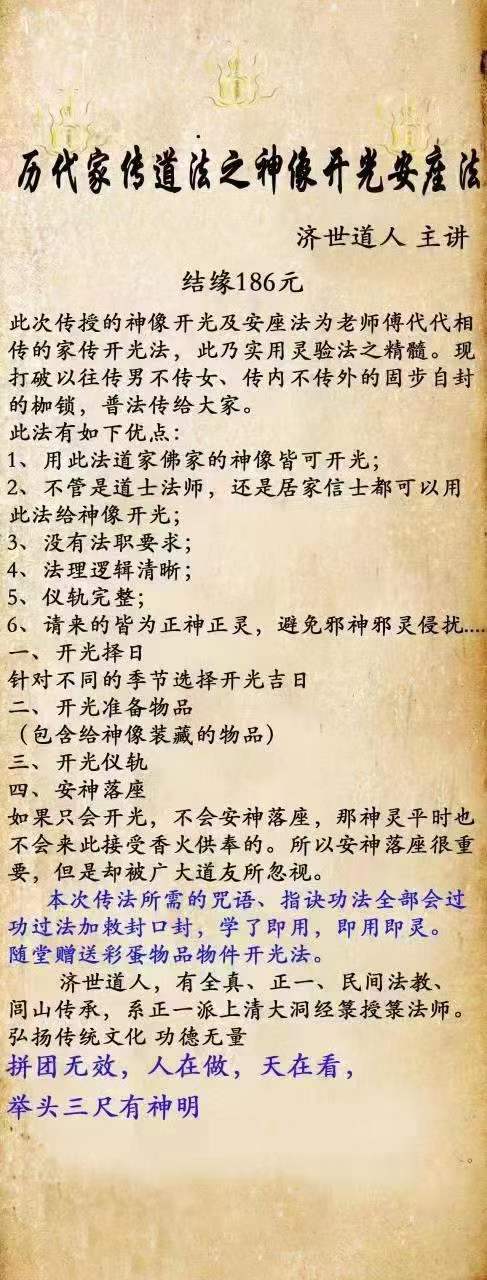 历代家传道法之神像开光安座法
济世道人 主讲
结缘186元
此次传授的神像开光及安座法为老师傅代代相
传的家传开光法，此乃实用灵验法之精髓。现
打破以往传男不传女、传内不传外的固步自封
的枷锁，普法传给大家。
此法有如下优点：
1、用此法道家佛家的神像皆可开光；
2、不管是道士法师，还是居家信士都可以用
此法给神像开光；
3、没有法职要求；
4、法理逻辑清晰；
5、仪轨完整；
6、请来的皆为正神正灵，避免邪神邪灵侵扰....
一、开光择日
针对不同的季节选择开光吉日
二、开光准备物品
（包含给神像装藏的物品）
三、开光仪轨
四、安神落座
如果只会开光，不会安神落座，那神灵平时也
不会来此接受香火供奉的。所以安神落座很重
要，但是却被广大道友所忽视。
本次传法所需的咒语、指诀功法全部会过
功过法加敕封口封，学了即用，即用即灵。
随堂赠送彩蛋物品物件开光法。
济世道人，有全真、正一、民间法教、
闾山传承，系正一派上清大洞经箓授箓法师。
弘扬传统文化 功德无量
拼团无效，人在做，天在看，
举头三尺有神明